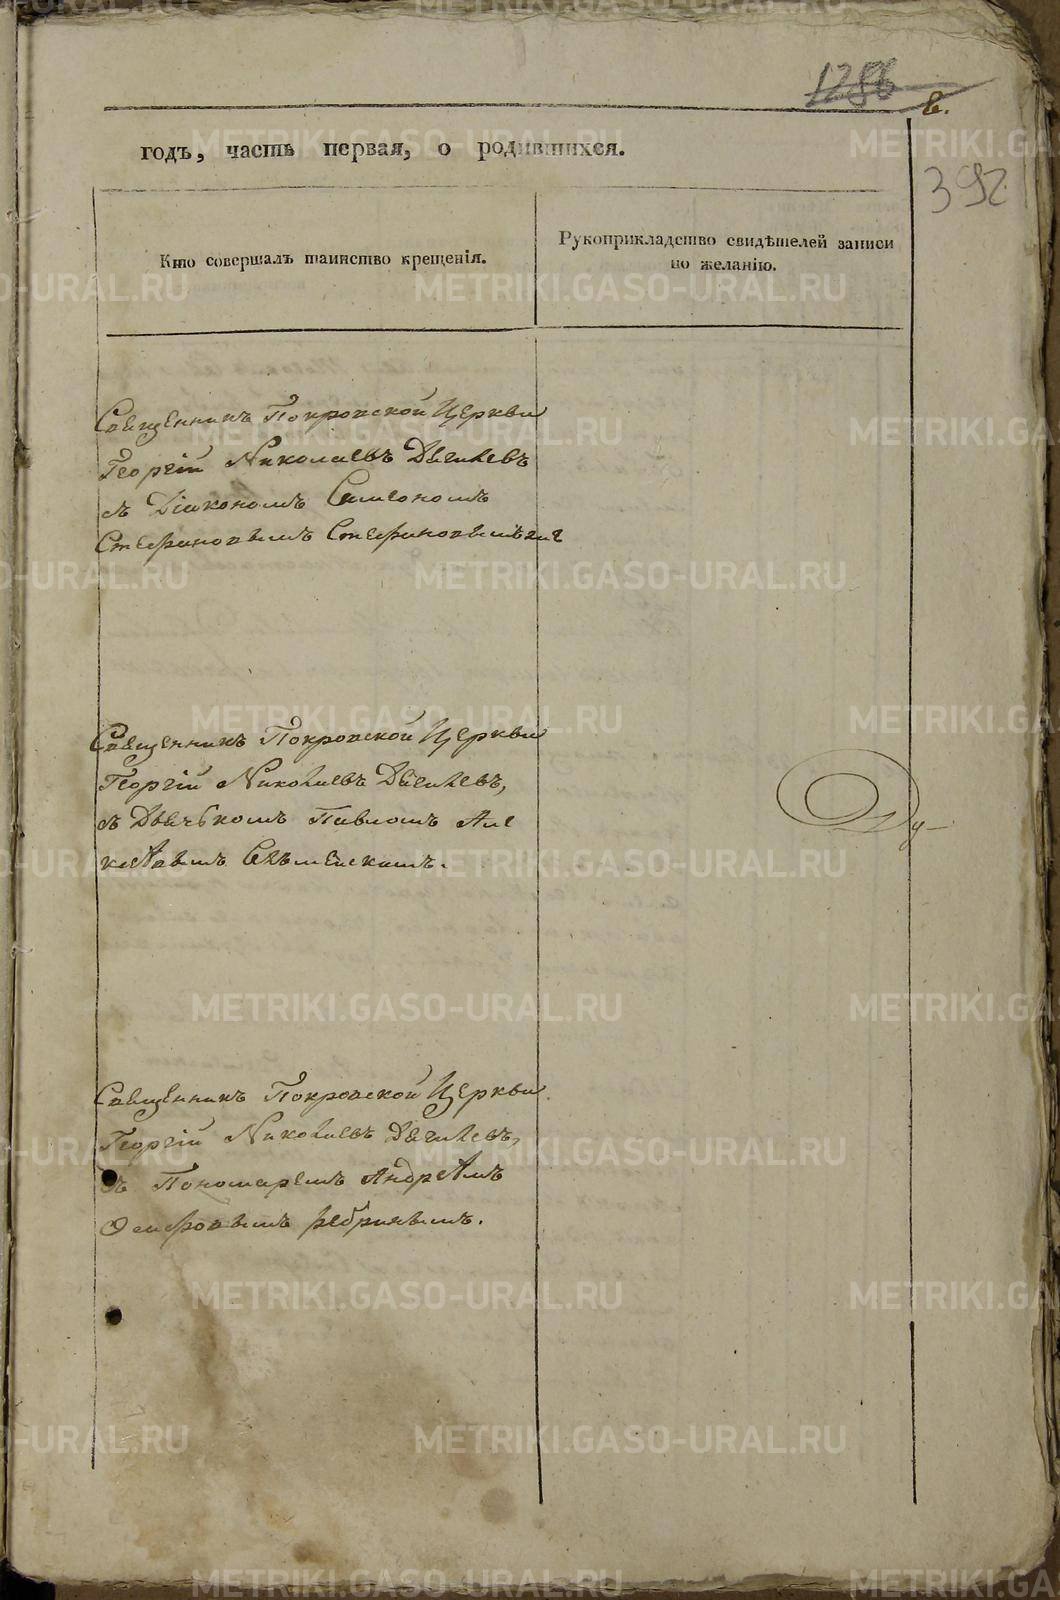 1286
2.
392
годъ, часть первая, о родившихся.
Кто совершалъ таинство крещенія.
Рукоприкладство свидѣтелей записи
по желанію.
Священникъ Покровской Церкви
Георгій Николаевъ Дягилевъ
съ Діакономъ Симеономъ
Стефановымъ
Священникъ Покровской Церкви
Георгій Николаевъ Дягилевъ,
съ Дьячкомъ Павломъ Але
Священникъ Покровской Церкви
Георгій Николаевъ Дягилевъ,
съ Пономаремъ Андреямъ
METRIKI.GASO-URAL.RU